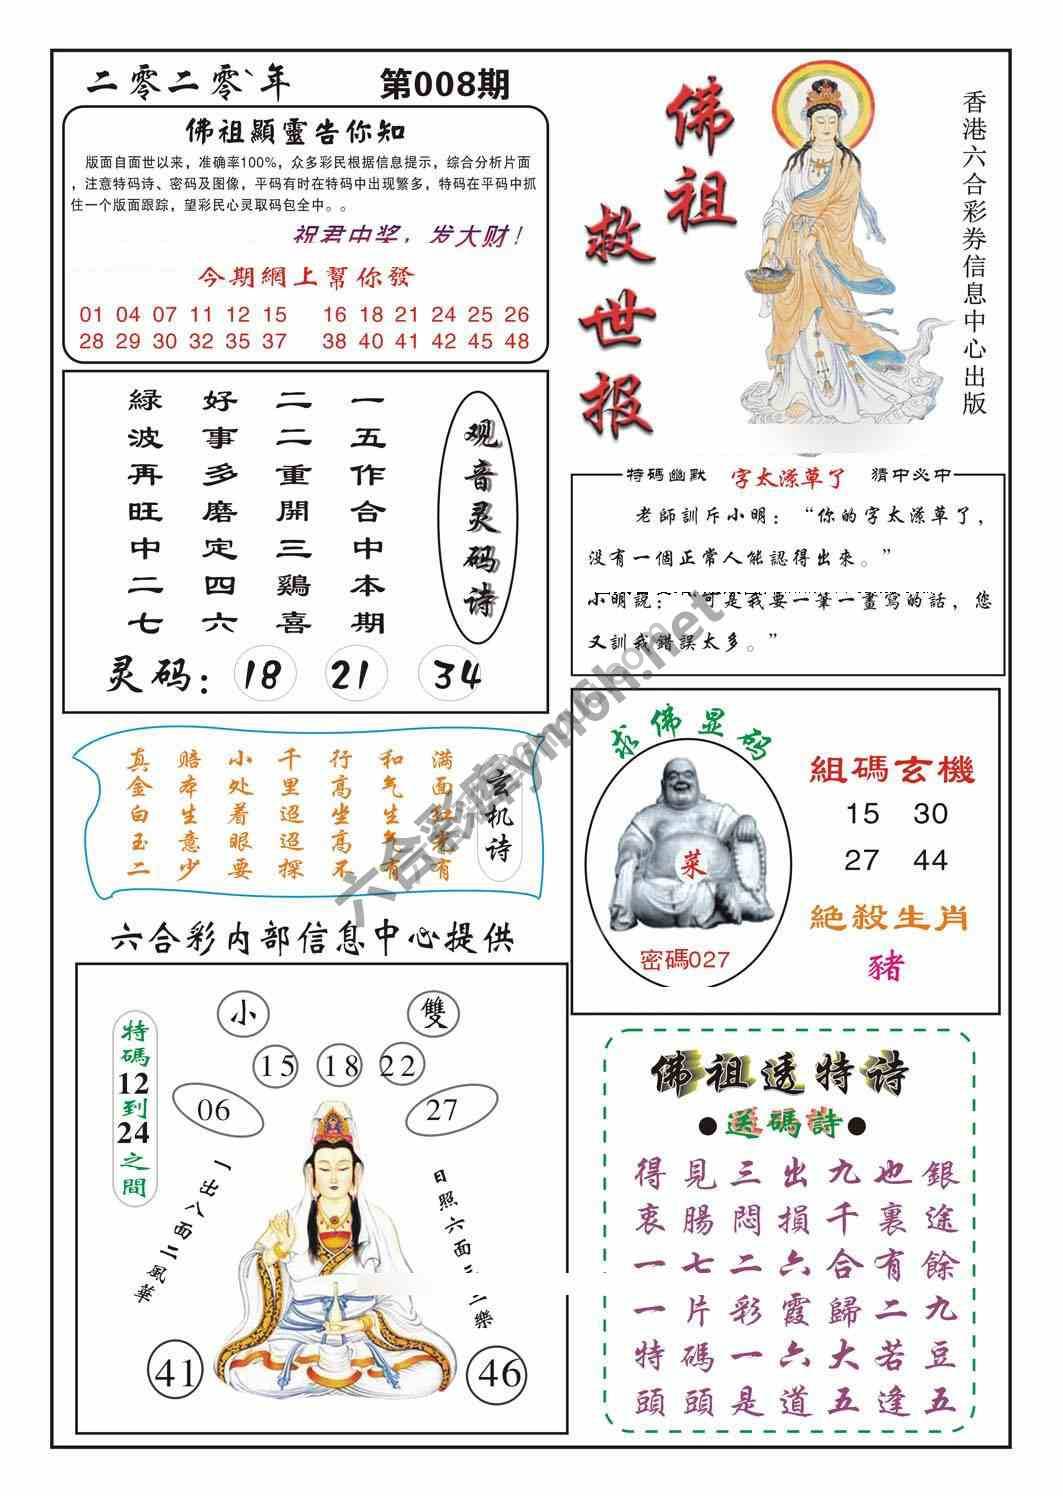 二零二零年
第008期
佛祖顯靈告你知
版面自面世以来，准确率100%，众多彩民根据信息提示，综合分析片面
，注意特码诗、密码及图像，平码有时在特码中出现繁多，特码在平码中抓
住一个版面跟踪，望彩民心灵取码包全中。。
祝君中奖，发大财！
今期網上幫你發
01 04 07 11 12 15 16 18 21 24 25 26
28 29 30 32 35 37 38 40 41 42 45 48
佛祖
救世报
香港六合彩券信息中心出版
观音灵码诗
一五作合中本期
二二重開三鷄喜
好事多磨定四六
緑波再旺中二七
灵码：18 21 34
特碼幽默 字太潦草了 猜中必中
老師訓斥小明：“你的字太潦草了，
没有一個正常人能認得出來。”
小明説：“可是我要一筆一畫寫的話，您
又訓我錯誤太多。”
玄机诗
满面红光有
和气生气有
行高坐高不
千里迢迢探
小处着眼要
赔本生意少
真金白玉二
求佛显码
菜
密碼027
組碼玄機
15 30
27 44
絕殺生肖
豬
六合彩内部信息中心提供
小 雙
15 18 22
06 27
特碼12到24之間
一出八面二風華
日照六面二樂
41 46
佛祖透特诗
●送碼詩●
得見三出九也銀
衷腸悶損千裏途
一七二六合有餘
一片彩霞歸二九
特碼一六大若豆
頭頭是道五逢五
六合彩库ym6h.net